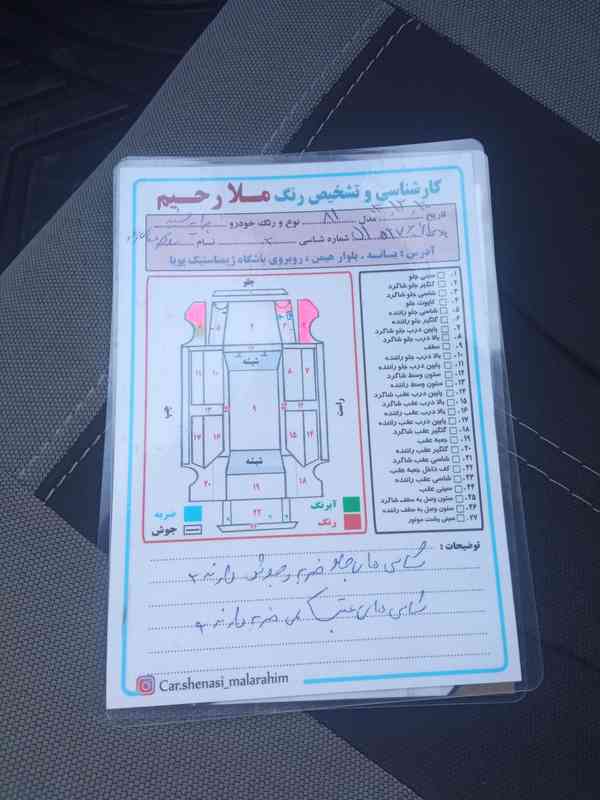 کارشناسی و تشخیص رنگ ملا رحیم
تاریخ مدل ۸۱ نوع و رنگ خودرو
شماره شاسی نام
آدرس : بانه ، بلوار هیمن ، روبروی باشگاه ژیمناستیک پویا
جلو
شیشه
شیشه
چپ
راست
آبرنگ
رنگ
ضربه
جوش
۱. سینی جلو
۲. گلگیر جلو شاگرد
۳. شاسی جلو شاگرد
۴. کاپوت جلو
۵. شاسی جلو راننده
۶. گلگیر جلو راننده
۷. پایین درب جلو شاگرد
۸. بالا درب جلو شاگرد
۹. سقف
۱۰. بالا درب جلو راننده
۱۱. پایین درب جلو راننده
۱۲. ستون وسط شاگرد
۱۳. ستون وسط راننده
۱۴. پایین درب عقب شاگرد
۱۵. بالا درب عقب شاگرد
۱۶. بالا درب عقب راننده
۱۷. پایین درب عقب راننده
۱۸. گلگیر عقب شاگرد
۱۹. جعبه عقب
۲۰. گلگیر عقب راننده
۲۱. شاسی عقب شاگرد
۲۲. کف داخل جعبه عقب
۲۳. شاسی عقب راننده
۲۴. سینی عقب
۲۵. ستون وصل به سقف شاگرد
۲۶. ستون وصل به سقف راننده
۲۷. سینی پشت موتور
توضیحات :
شاسی های جلو ضربه و جوش دارند
شاسی های عقب ضربه دارند
Car.shenasi_malarahim